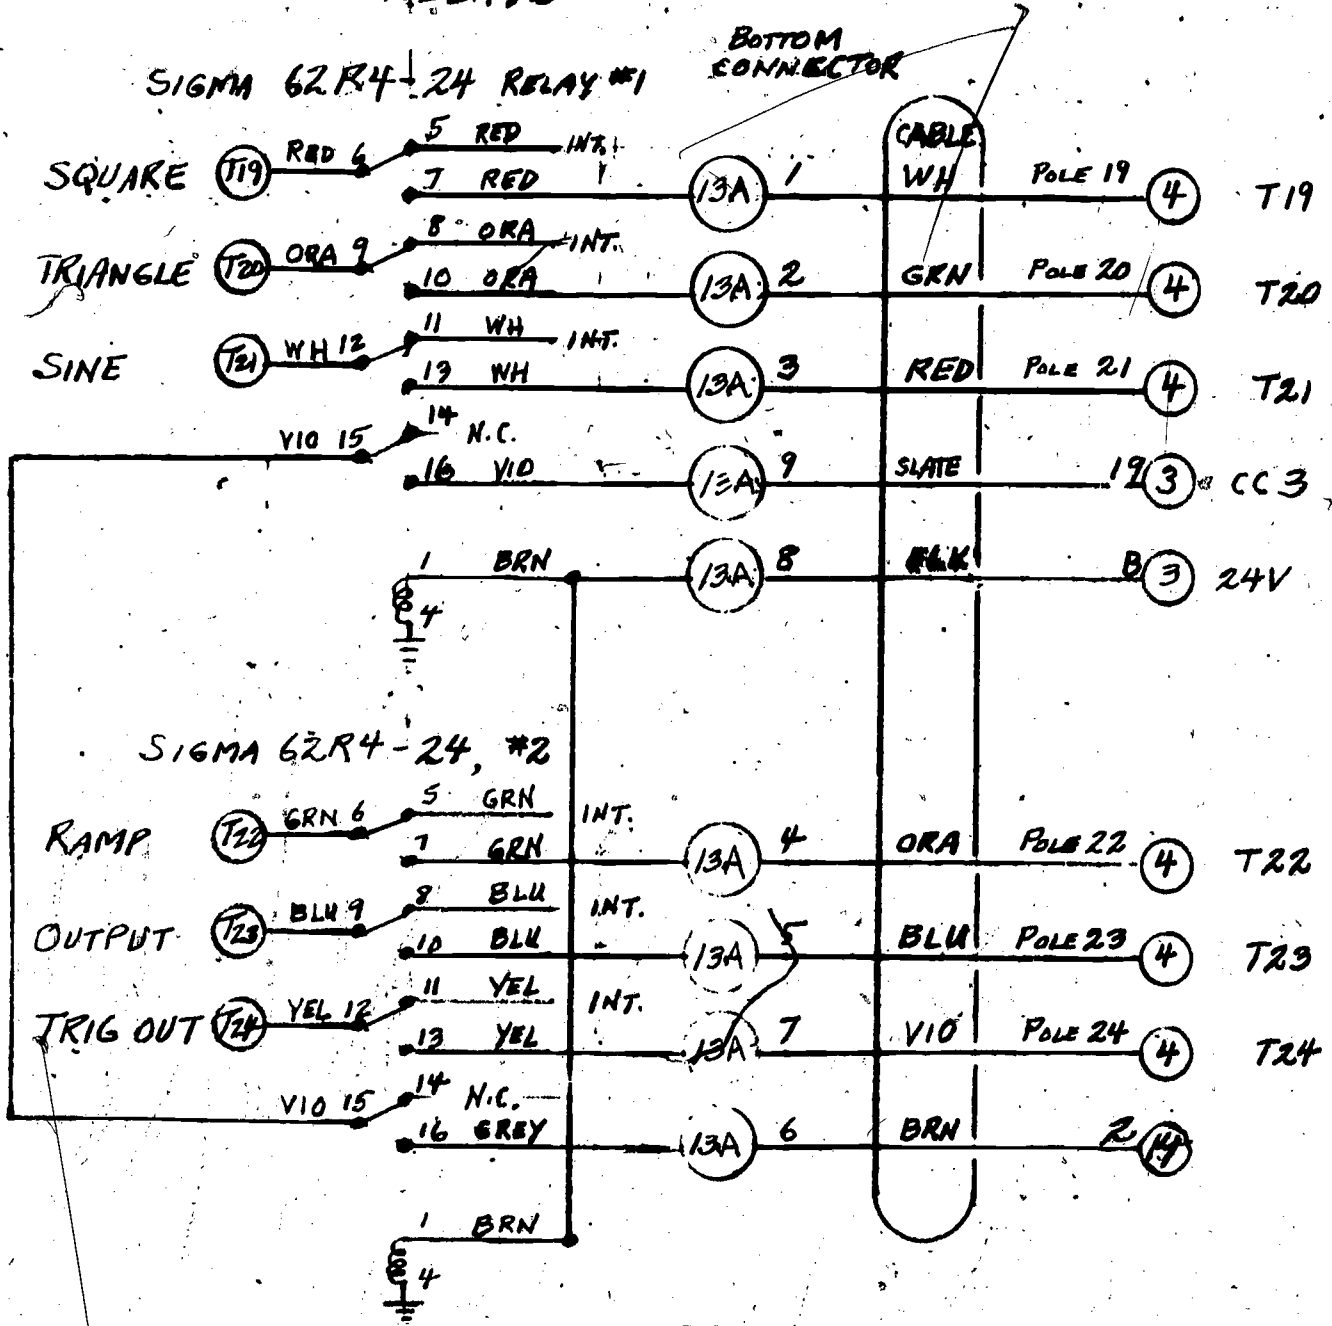 BOTTOM
CONNECTOR
SIGMA 62R4-24 RELAY #1
CABLE
SQUARE T19 RED 6 5 RED INT.
7 RED 13A 1 WH POLE 19 4 T19
TRIANGLE T20 ORA 9 8 ORA INT.
10 ORA 13A 2 GRN POLE 20 4 T20
SINE T21 WH 12 11 WH INT.
13 WH 13A 3 RED POLE 21 4 T21
VIO 15 14 N.C.
16 VIO 13A 9 SLATE 19 3 CC3
1 BRN 13A 8 BLK B 3 24V
4
SIGMA 62R4-24, #2
RAMP T22 GRN 6 5 GRN INT.
7 GRN 13A 4 ORA POLE 22 4 T22
OUTPUT T23 BLU 9 8 BLU INT.
10 BLU 13A 5 BLU POLE 23 4 T23
TRIG OUT T24 YEL 12 11 YEL INT.
13 YEL 13A 7 VIO POLE 24 4 T24
VIO 15 14 N.C.
16 GREY 13A 6 BRN 2
1 BRN
4